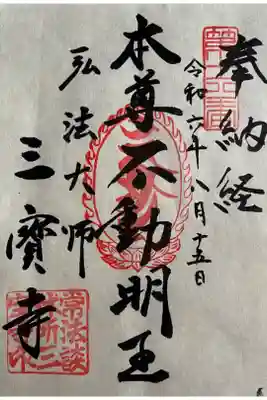 奉納経
令和六年八月十五日
本尊不動明王
弘法大師
三寳寺